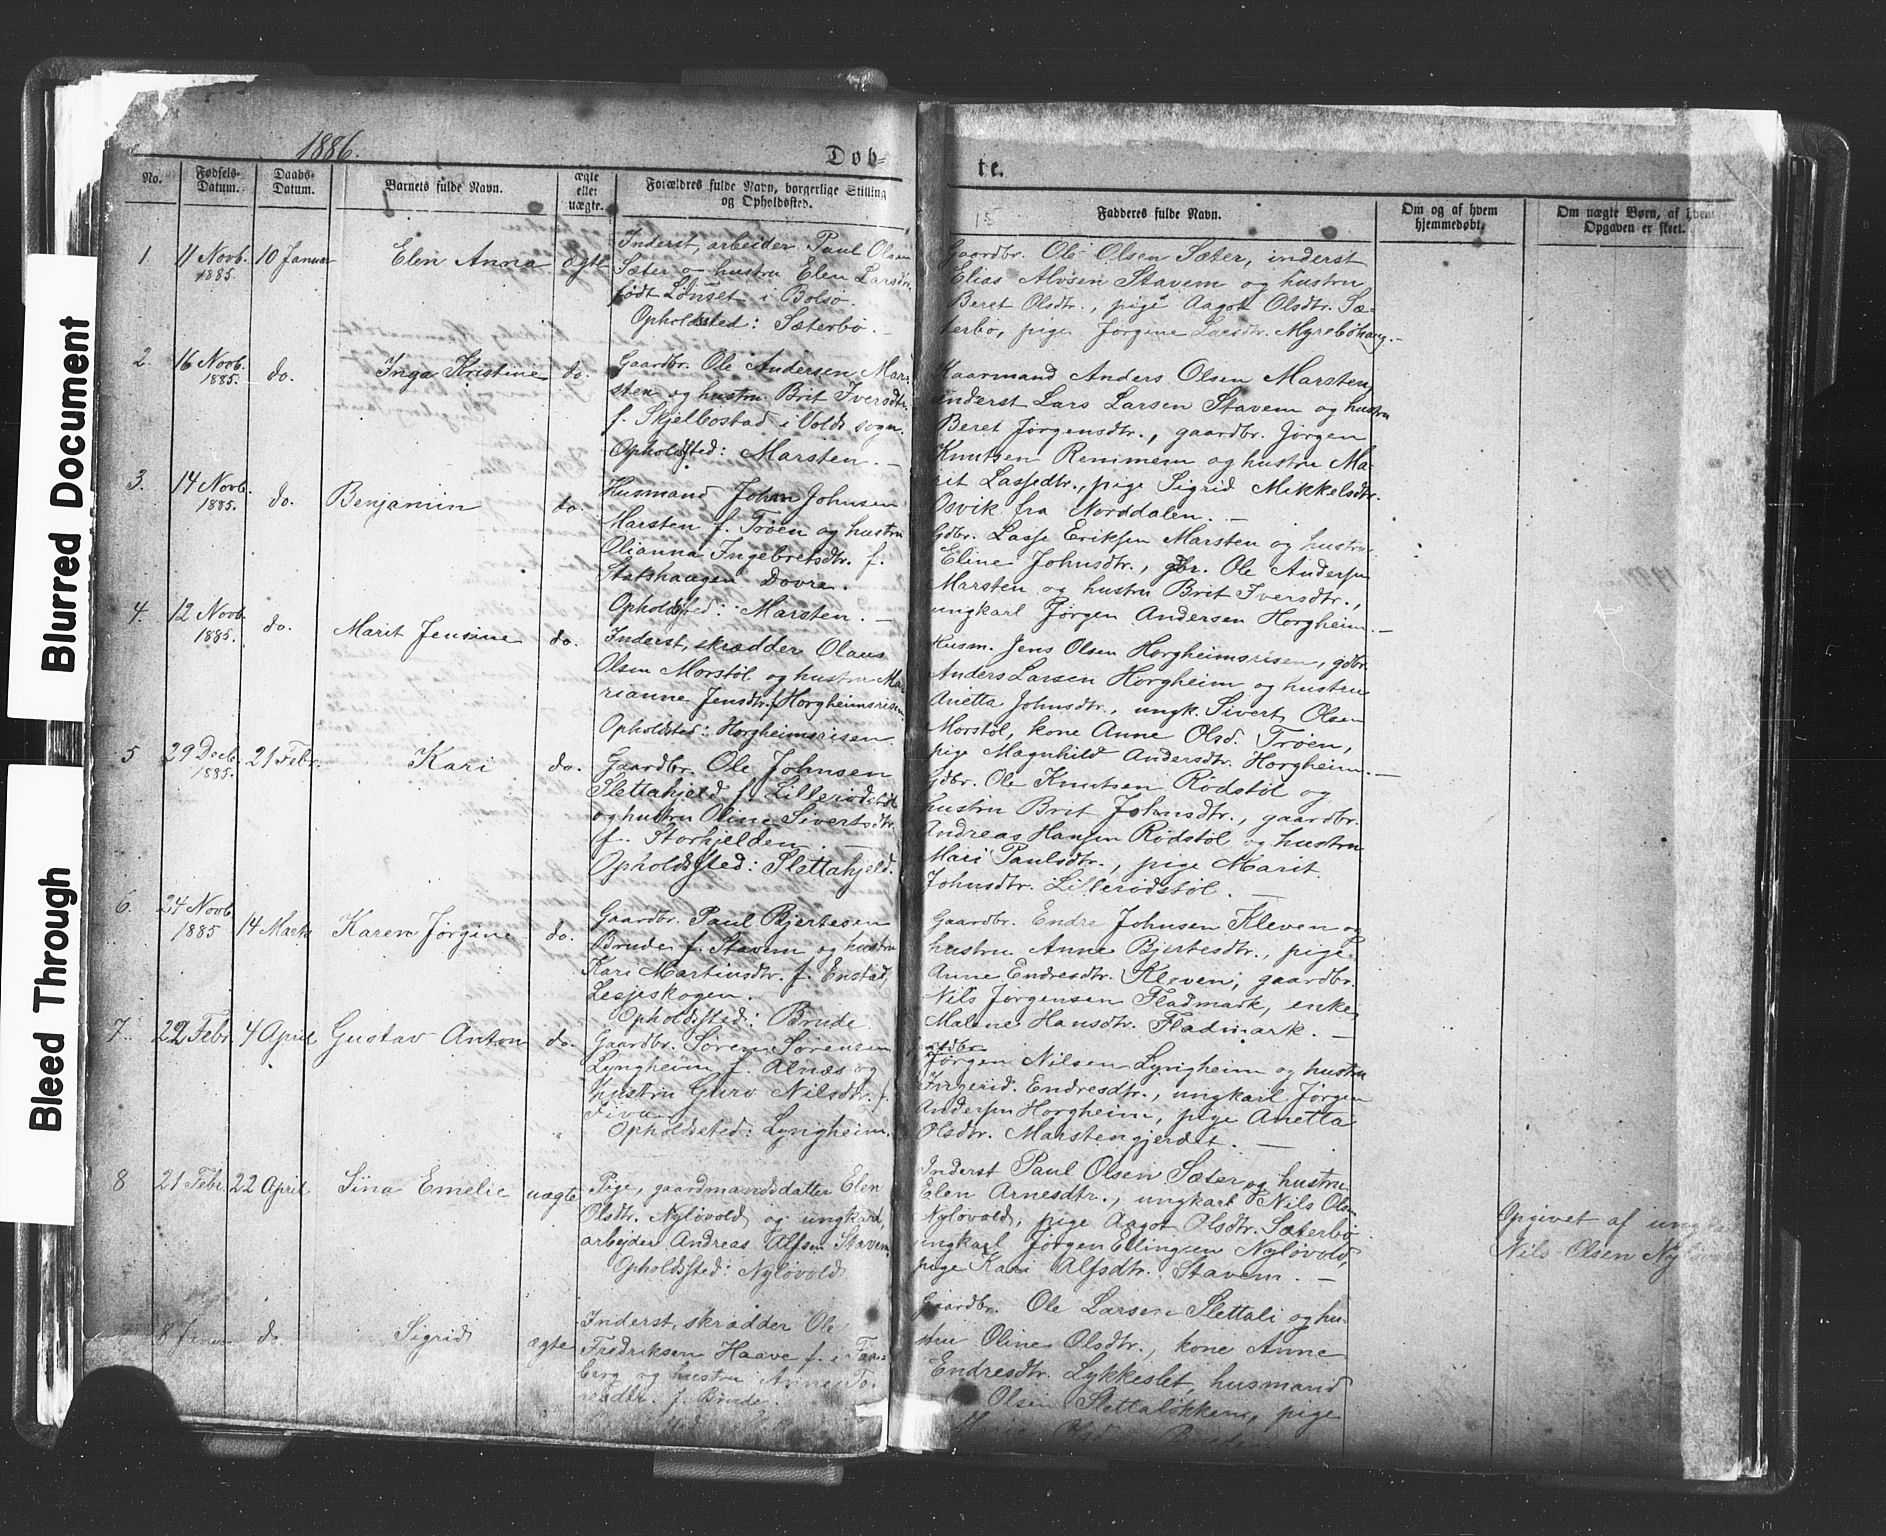 Blurred Document
Bleed Through
1886.
Døb-
te.
No.
Fødsels-Datum.
Daabs-Datum.
Barnets fulde Navn.
ægte eller uægte.
Forældres fulde Navn, borgerlige Stilling og Opholdssted.
15
Fadderes fulde Navn.
Om og af hvem hjemmedøbt.
Om uægte Børn, af hvem Opgaven er skeet.
1. 11 Novb. 1885. 10 Januar Elen Anna ægte
Inderst, arbeider Paul Olsen
Sæter o hustru Elen Larsdtr.
født Lønset i Bolsø.
Opholdsted: Sæterbø. —
Gaardbr. Ole Olsen Sæter, inderst
Elias Alvsen Stavem og hustru
Beret Olsdtr., pige Aagot Olsdtr. Sæ-
terbø, pige Jørgine Larsdtr. Myrebøhaug. —
2. 16 Novb. 1885. do. Inga Kristine do.
Gaardbr. Ole Andersen Mar-
sten og hustru Brit Iversdtr.
f. Skjelbostad i Volds sogn.
Opholdssted: Marsten. —
Kaarmand Anders Olsen Marsten,
inderst Lars Larsen Stavem og hustru
Beret Jørgensdtr., gaardbr. Jørgen
Knutsen Remmem og hustru Ma-
rit Lassedtr., pige Sigrid Mikkelsdtr.
Osvik fra Norddalen. —
3. 14 Novb. 1885. do. Benjamin do.
Husmand Johan Johnsen
Marsten f. Trøen og hustru
Olianna Ingebretsdtr. f.
Stakshaugen Dovre.
Opholdssted: Marsten. —
Gdbr. Lasse Eriksen Marsten og hustru
Eline Johnsdtr., gbr. Ole Andersen
Marsten og hustru Brit Iversdtr.,
ungkarl Jørgen Andersen Horgheim. —
4. 12 Novb. 1885. do. Marit Jensine do.
Inderst, skrædder Olaus
Olsen Morstøl og hustru Ma-
rianne Jensdtr. f. Horgheimsrisen
Opholdsted: Horgheimsrisen.
Husm. Jens Olsen Horgheimsrisen, gdbr.
Anders Larsen Horgheim og hustru
Anetta Johnsdtr., ungk. Sivert Olsen
Morstøl, kone Anne Olsd. Trøen,
pige Magnhild Andersdtr. Horgheim. —
5 29 Decb. 1885. 21 Febr. Kari do.
Gaardbr. Ole Johnsen
Slettahjeld f. Lillerødstøl
og hustru Oline Sivertsdtr
f. Storhjelden. —
Opholdssted: Slettahjeld.
Gdbr. Ole Knutsen Rødstøl og
hustru Brit Johnsdtr., gaardbr.
Andreas Hansen Rødstøl og hustru
Mari Paulsdtr., pige Marit
Johnsdtr. Lillerødstøl. —
6. 24 Novb. 1885 14 Marts Karen Jørgine do.
Gaardbr. Paul Bjertesen
Brude f. Stavem og hustru
Kari Martinsdtr. f. Enstad,
Lesjeskogen.
Opholdssted: Brude
Gaardbr. Endre Johnsen Kleven og
hustru Anne Bjertesdtr., pige
Anne Endresdtr. Kleven, gaardbr.
Nils Jørgensen Fladmark, enke
Malene Hansdtr. Fladmark. —
7. 22 Febr. 4 April Gustav Anton do.
Gaardbr. Søren Sørensen
Lyngheim f. Alnæs og
hustru Guro Nilsdtr. f.
Fiva.
Opholdssted: Lyngheim.
gårdbr.
Jørgen Nilsen Lyngheim og hustru
Ingerid. Endresdtr., ungkarl Jørgen
Andersen Horgheim, pige Anetta
Olsdtr. Marstengjerdet. —
8 21 Febr. 22 April Sina Emelie uægte
Pige, gaardmandsdatter Elen
Olsdtr. Nyløvold og ungkarl,
arbejder Andreas Alfsen Stavem.
Opholdssted: Nyløvold.
Inderst Paul Olsen Sæter og hustru
Elen Arnesdtr., ungkarl Nils Olsen
Nyløvold, pige Aagot Olsdtr. Sæterbø
ungkarl Jørgen Ellingsen Nyløvold,
pige Kari Alfsdtr. Stavem. —
Opgivet af ungkarl
Nils Olsen Nyløvold
8 Januar do. Sigrid ægte
Inderst, skrædder Ole
Fredriksen Haave f. i Faa-
berg og hustru Anne To-
f. Brude.
Gaardbr. Ole Larsen Slettali og hu-
stru Oline Olsdtr., kone Anne
Endresdtr. Lykkeslet, husmand
Olsen Slettaløkken, pige